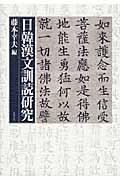 如來護念而生信受
菩薩法應如是得佛
能生勇猛何以故
就一切諸佛法故譬
日韓漢文訓読研究
藤本幸夫 編